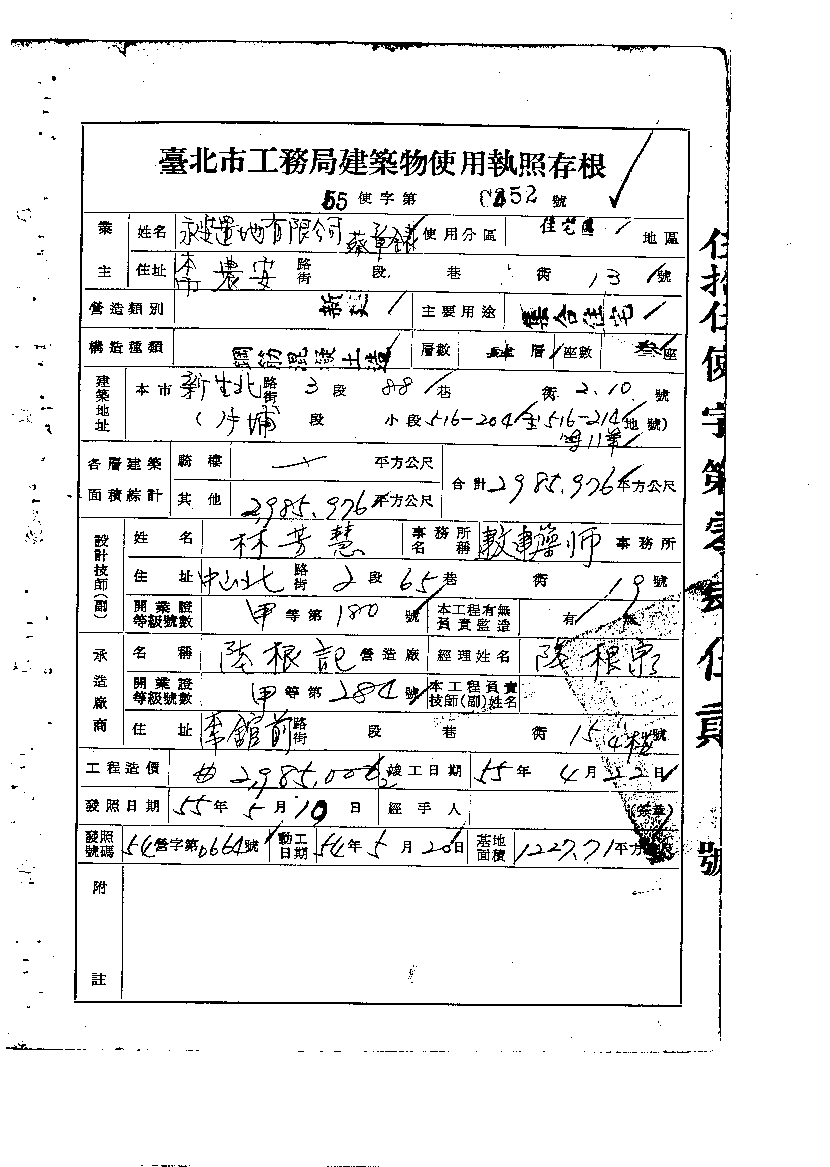 臺北市工務局建築物使用執照存根
55 使字第 0252 號
業主 姓名 有限公司 蔡章 使用分區 住宅區 地區
住址 本市 農安 路街 段 巷 衖 13 號
營造類別 新建 主要用途 集合住宅
構造種類 鋼筋混凝土造 層數 肆 層 座數 叁 座
建築地址 本市 新生北 路街 3 段 88 巷 衖 2.10 號
( 埔 段 小段 516-204 至 516-214 地號) 等11筆
各層建築面積綜計 騎樓 平方公尺 合計 2985.976 平方公尺
其他 2,985.976 平方公尺
設計技師(副) 姓名 林芳慧 事務所名稱 建築師 事務所
住址 中山北 路街 2 段 65 巷 衖 19 號
開業證等級號數 甲 等第 180 號 本工程有無負責監造 有 無
承造廠商 名稱 陸根記 營造廠 經理姓名 陸根泉
開業證等級號數 甲 等第 284 號 本工程負責技師(副)姓名
住址 本市 館前 路街 段 巷 衖 15 號 4樓
工程造價 2,985,00 竣工日期 55 年 4 月 22 日
發照日期 55 年 5 月 10 日 經手人 (簽章)
發照號碼 54 營字第 0664 號 動工日期 54 年 5 月 20 日 基地面積 1227.71 平方公尺
附註
伍拾伍使字第零貳伍貳號